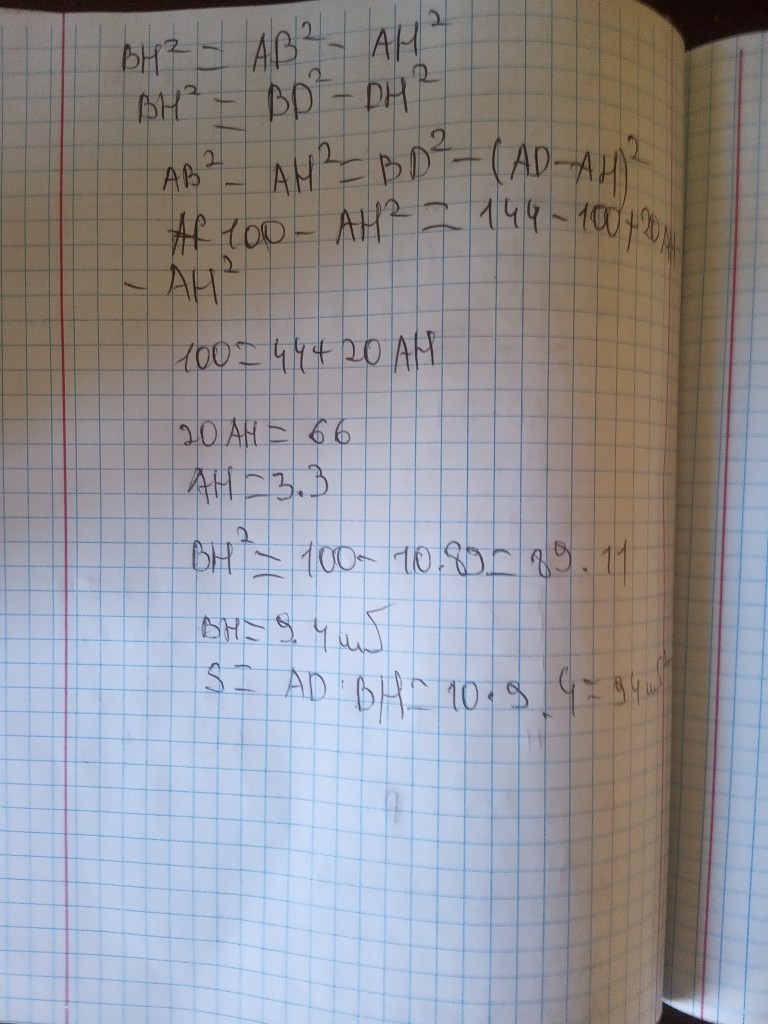 BH² = AB² - AH²
BH² = BD² - DH²
AB² - AH² = BD² - (AD - AH)²
100 - AH² = 144 - 100 + 20AH
- AH²
100 = 44 + 20 AH
20 AH = 66
AH = 3.3
BH² = 100 - 10.89 = 89.11
BH = 9.4 սմ
S = AD · BH = 10 · 9.4 = 94 սմ²